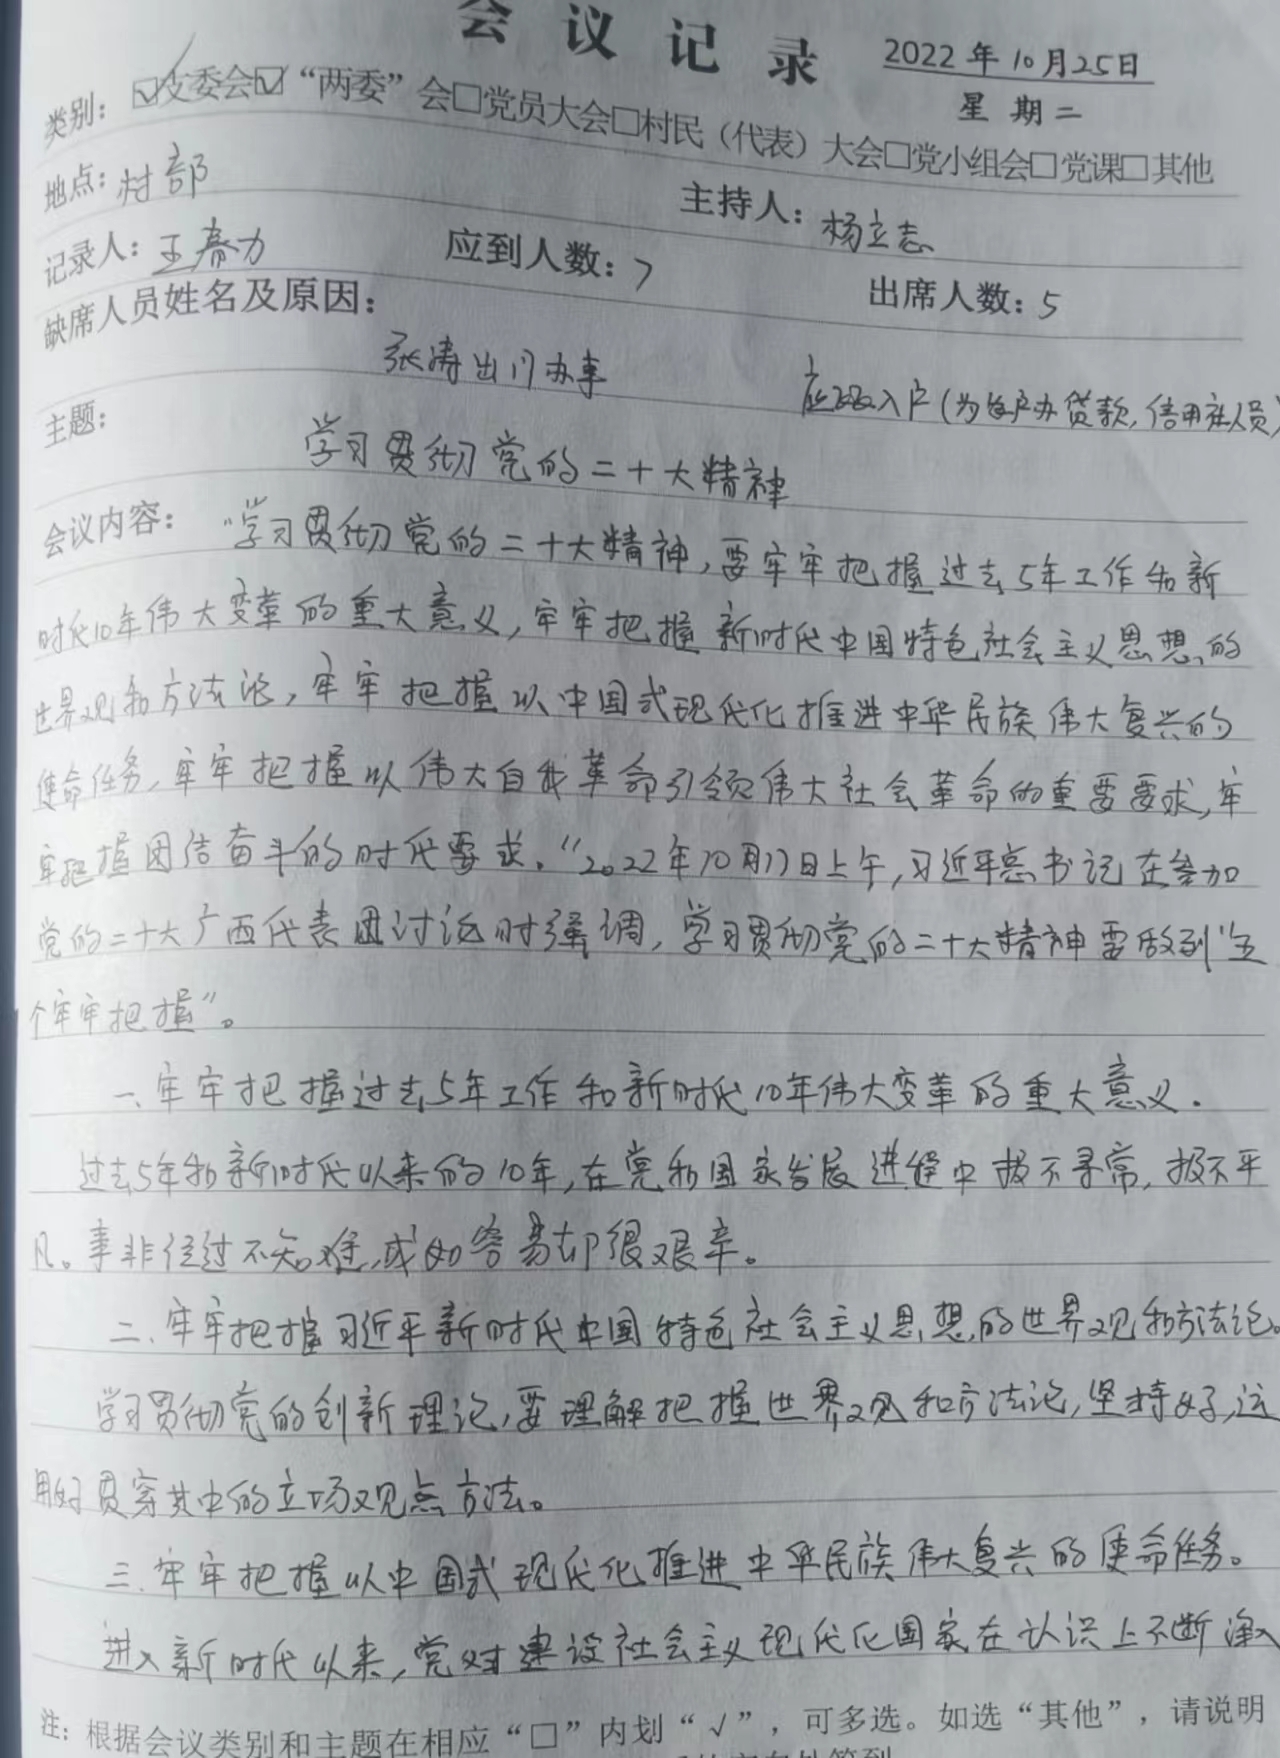 会议记录
2022年10月25日
星期二
类别：☑支委会☑“两委”会□党员大会□村民（代表）大会□党小组会□党课□其他
地点：村部
主持人：杨立志
记录人：王春力 应到人数：7 出席人数：5
缺席人员姓名及原因：
张涛出门办事 入户（为农户办贷款，信用社人员）
主题：
学习贯彻党的二十大精神
会议内容：“学习贯彻党的二十大精神，要牢牢把握过去5年工作和新
时代10年伟大变革的重大意义，牢牢把握新时代中国特色社会主义思想的
世界观和方法论，牢牢把握以中国式现代化推进中华民族伟大复兴的
使命任务，牢牢把握以伟大自我革命引领伟大社会革命的重要要求，牢
牢把握团结奋斗的时代要求。”2022年10月17日上午，习近平总书记在参加
党的二十大广西代表团讨论时强调，学习贯彻党的二十大精神要做到“五
个牢牢把握”。
一、牢牢把握过去5年工作和新时代10年伟大变革的重大意义．
过去5年和新时代以来的10年，在党和国家发展进程中极不寻常，极不平
凡。事非经过不知难，成如容易却很艰辛。
二、牢牢把握习近平新时代中国特色社会主义思想的世界观和方法论。
学习贯彻党的创新理论，要理解把握世界观和方法论，坚持好，运
用好贯穿其中的立场观点方法。
三、牢牢把握以中国式现代化推进中华民族伟大复兴的使命任务。
进入新时代以来，党对建设社会主义现代化国家在认识上不断深入
注：根据会议类别和主题在相应“□”内划“√”，可多选。如选“其他”，请说明